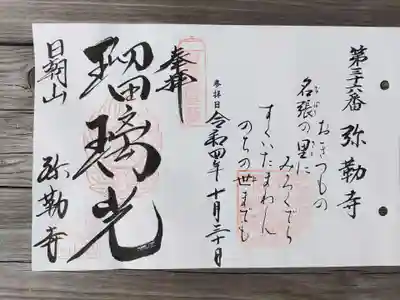 第三十六番 弥勒寺
おきつもの
名張の里に
みろくでら
すくいたまわん
のちの世までも
参拝日 令和四年 十月三十日
奉拝
瑠璃光
日朝山 弥勒寺